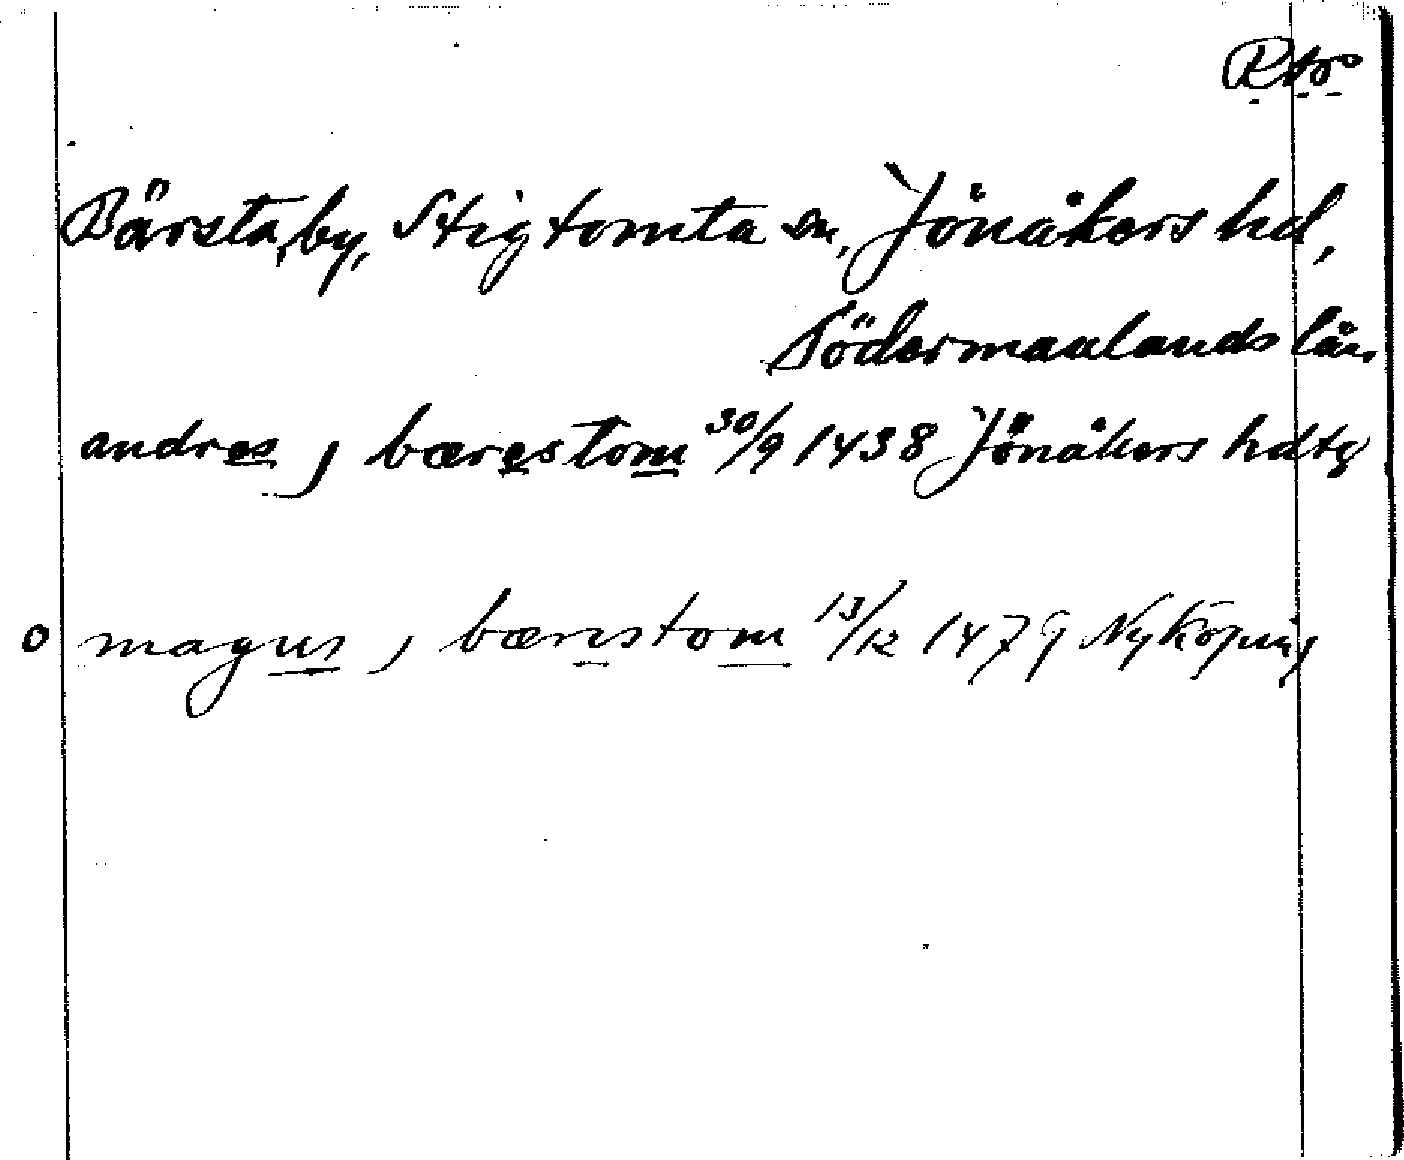 Bärsta, by, Stigtomta sn, Jönåkers hd,
Södermanlands län
andres j bærestom 30/9 1438 Jönåkers hdtg
o magnus j bærestom 13/12 1479 Nyköping